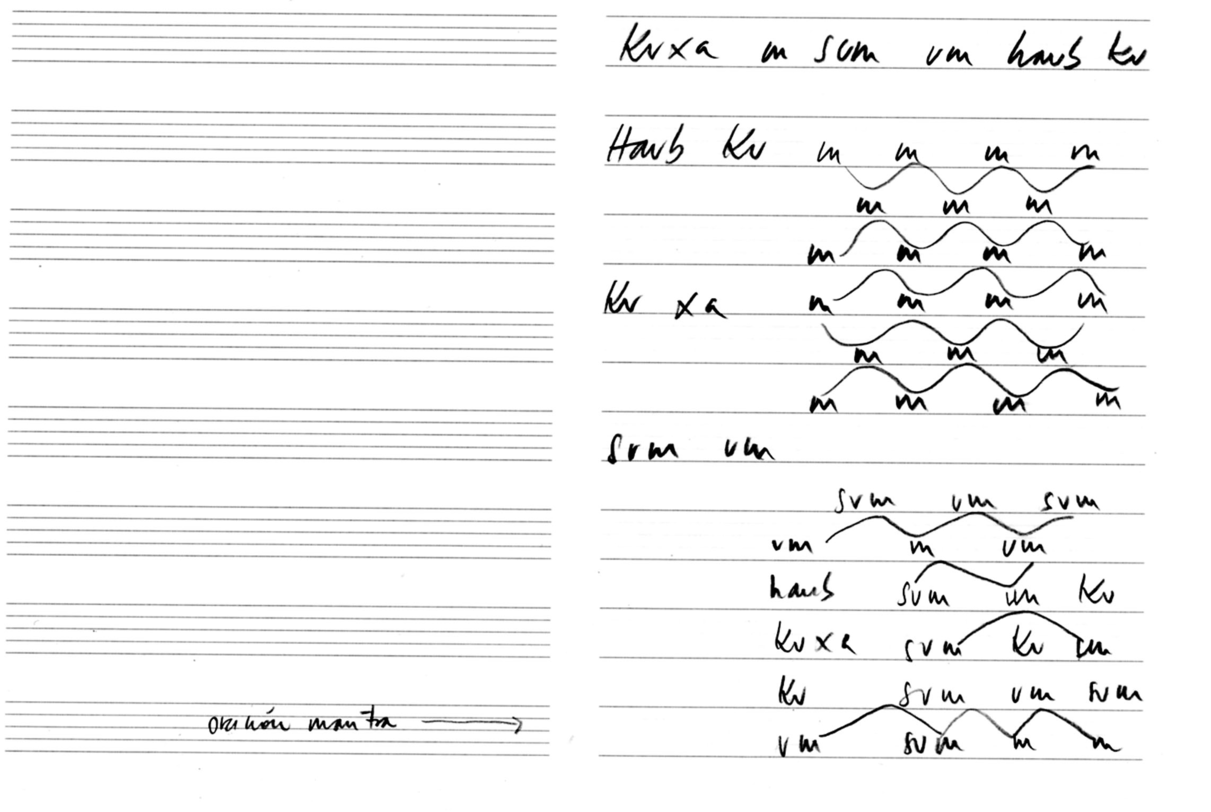 oración mantra
Kvxa m svm vm havb Kv
Havb Kv m m m m
m m m
m m m m
Kv xa m m m m
m m m
m m m m
svm vm
svm vm svm
vm m vm
havb svm vm Kv
Kvxa svm Kv vm
Kv svm vm svm
vm svm m m